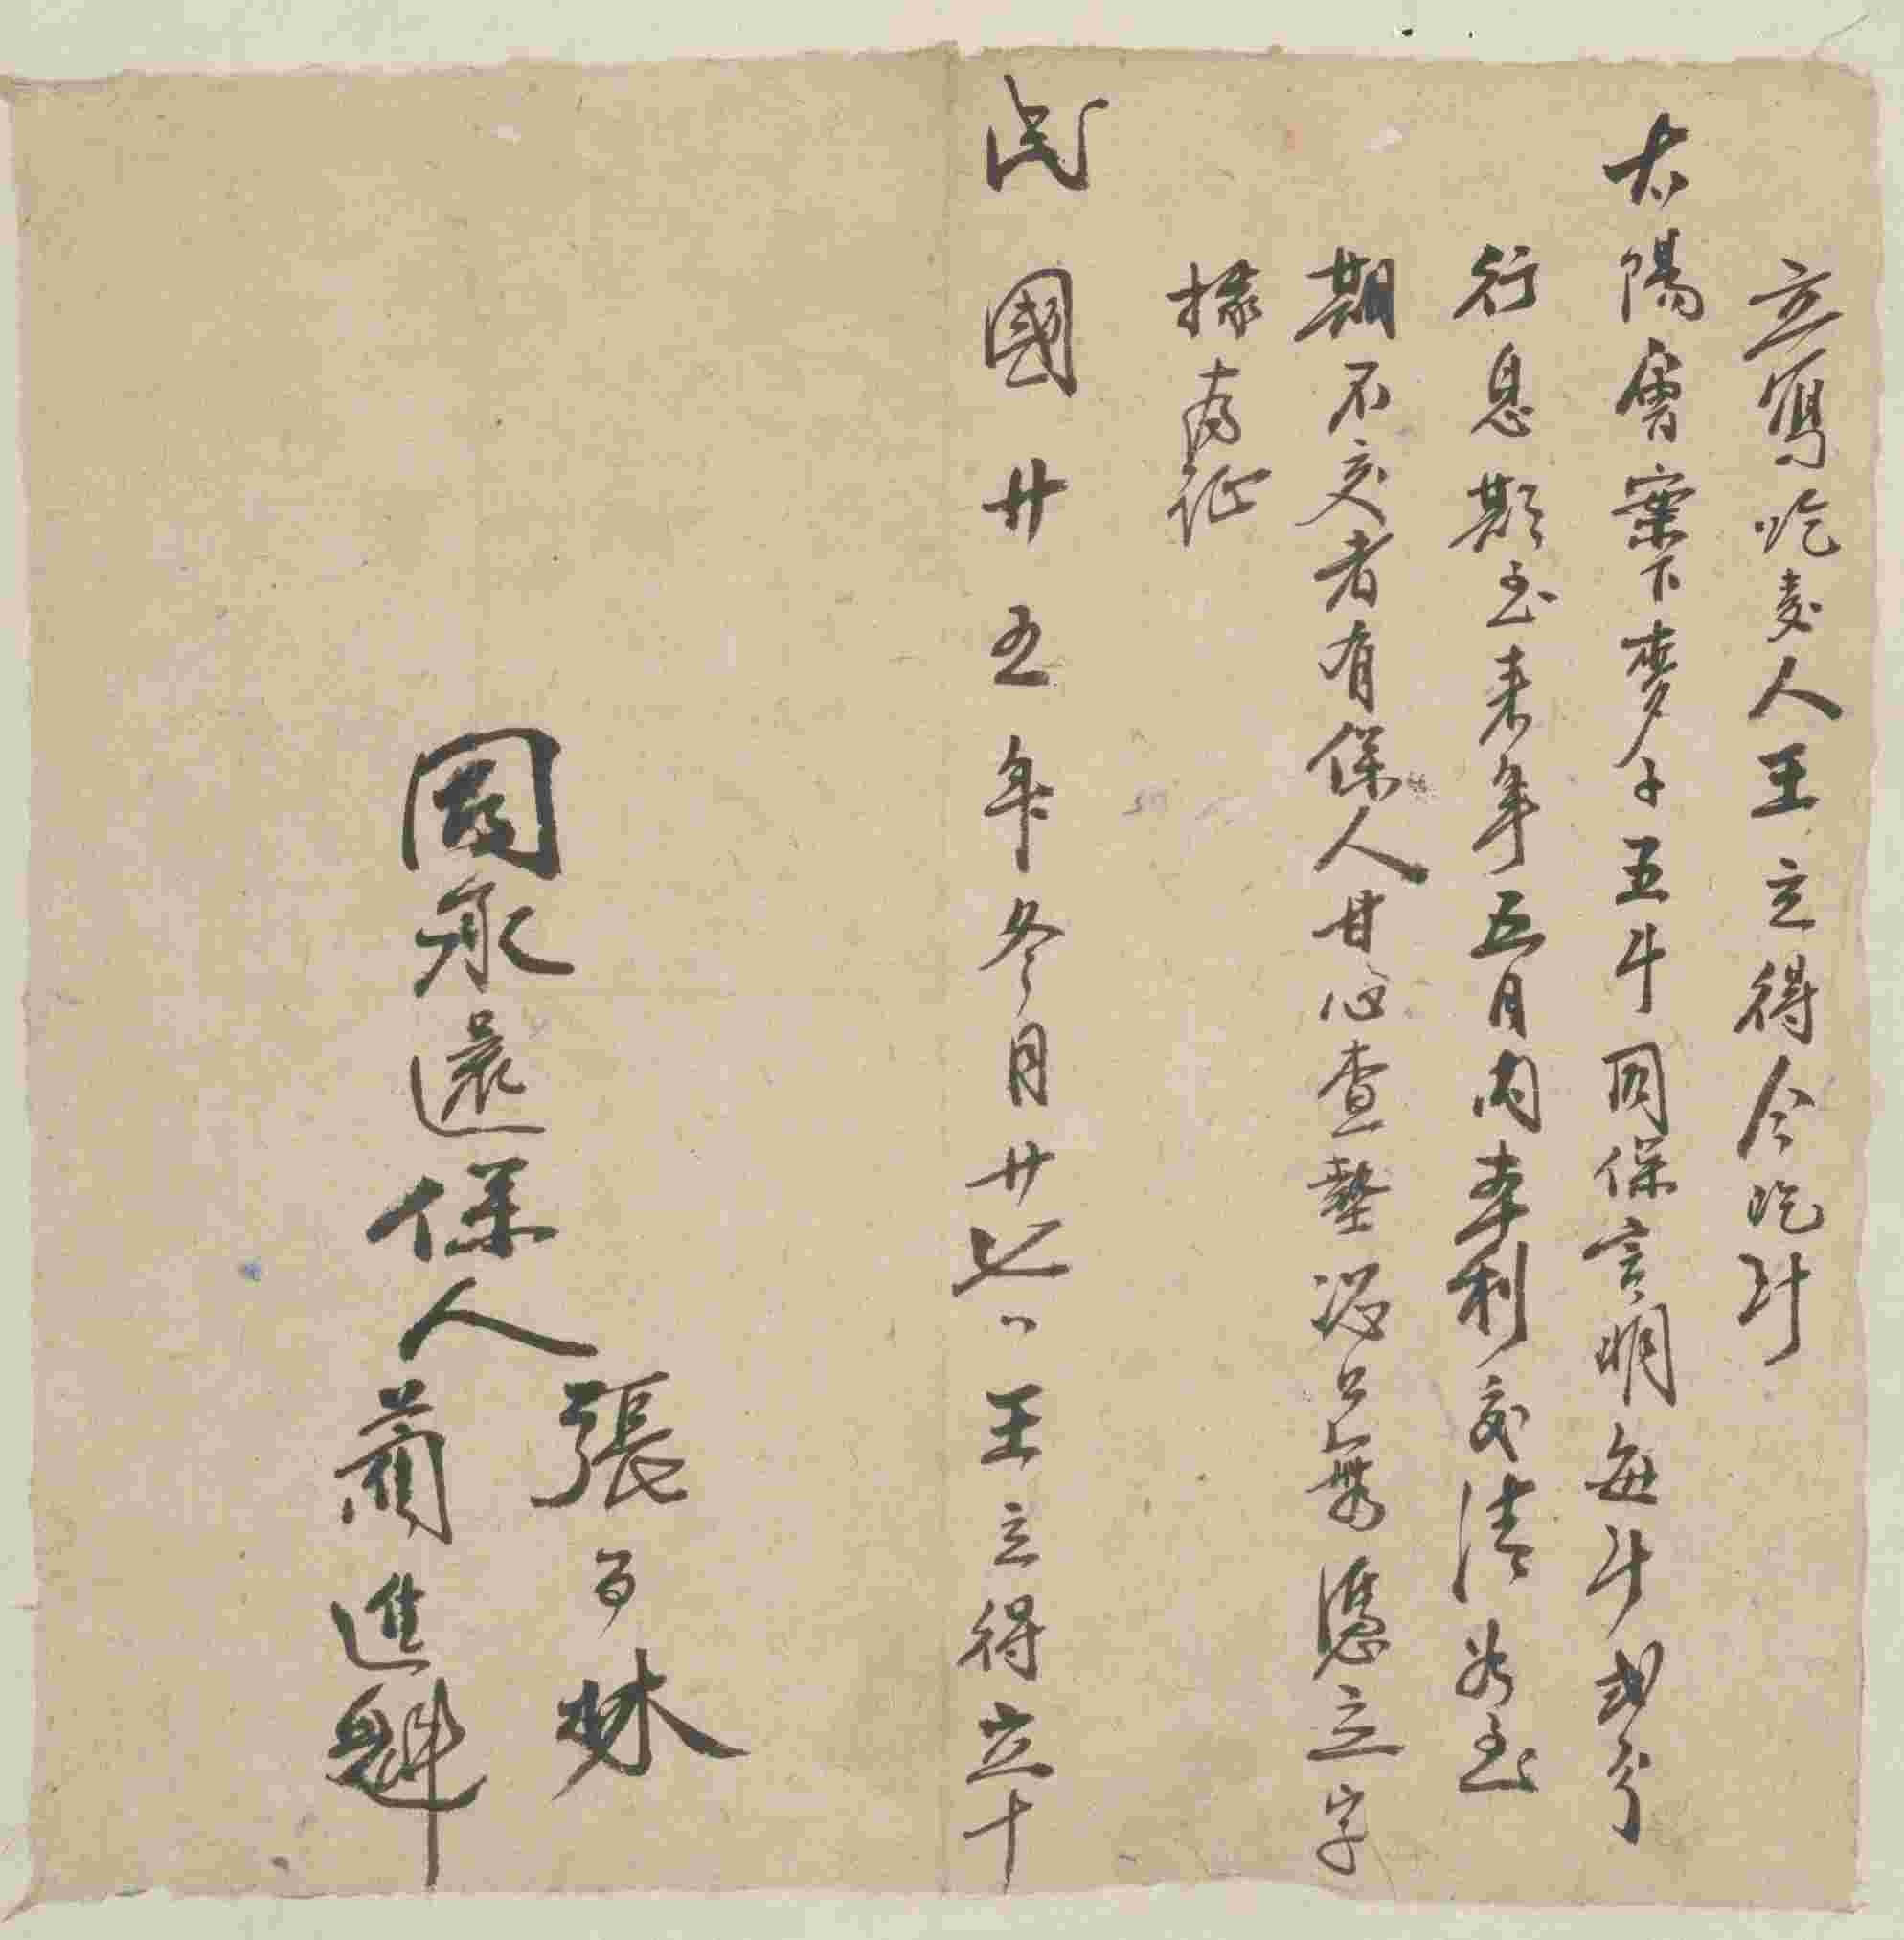 立寫吃麦人王立得今吃到
太陽會案下麥子五斗同保言明每斗弍分
行息期至來年五月內本利交清如至
期不交者有保人甘心查墊恐口無憑立字
據為証
民國廿五年冬月廿七日王立得立十
同承還保人
張百林
藺進魁